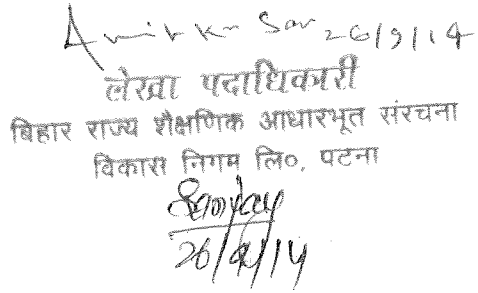 Amit Kr 26/9/14
लेखा पदाधिकारी
बिहार राज्य शैक्षणिक आधारभूत संरचना
विकास निगम लि०, पटना
Sanjay
26/9/14